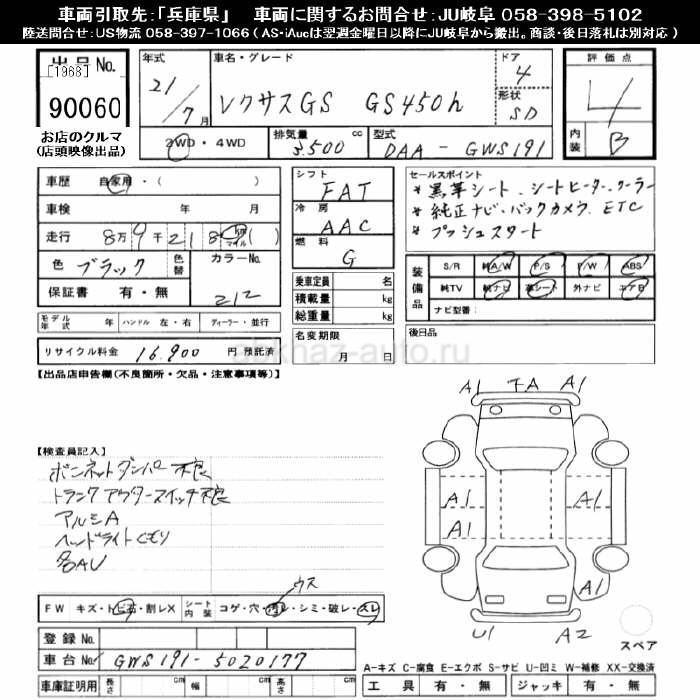 車両引取先:「兵庫県」 車両に関するお問合せ:JU岐阜 058-398-5102
陸送問合せ:US物流 058-397-1066 ( AS・iAucは翌週金曜日以降にJU岐阜から搬出。商談・後日落札は別対応 )
出品No.
[1968]
90060
お店のクルマ
(店頭映像出品)
年式
21/7月
車名・グレード
レクサスGS GS450h
ドア
4
形状
SD
評価点
4
内装
B
2WD・4WD
排気量
3.500 cc
型式
DAA - GWS191
車歴 自家用・( )
車検 年 月
走行 8万9千218 km マイル ( )
色 ブラック 色替 カラーNo.
212
保証書 有・無
シフト
FAT
冷房
AAC
燃料
G
乗車定員 名
積載量 kg
総重量 kg
セールスポイント
* 黒革シート、シートヒーター、クーラー
* 純正ナビ・バックカメラ、ETC
* プッシュスタート
装備品
S/R 純A/W P/S P/W ABS
純TV 純ナビ 革シート 外ナビ エアB
ナビ型番:
モデル年式 年 ハンドル 左・右 ディーラー・並行
名変期限
月 日
後日品
リサイクル料金 16,900 円 預託済
abkhaz-auto.ru
【出品店申告欄(不良箇所・欠品・注意事項等)】
【検査員記入】
ボンネットダンパー不良
トランクアウタースイッチ不良
アルミA
ヘッドライトくもり
各AU
A1 7A A1
A1 A1
A1
A1
U1 A2
スペア
ウス
FW キズ・トビ石・割レX シート内装 コゲ・穴・汚レ・シミ・破レ・スレ
登録No.
車台No. GWS191-5020177
車庫証明用 長さ cm 幅 cm 高さ cm
A-キズ C-腐食 E-エクボ S-サビ U-凹ミ W-補修 XX-交換済
工具 有・無 ジャッキ 有・無